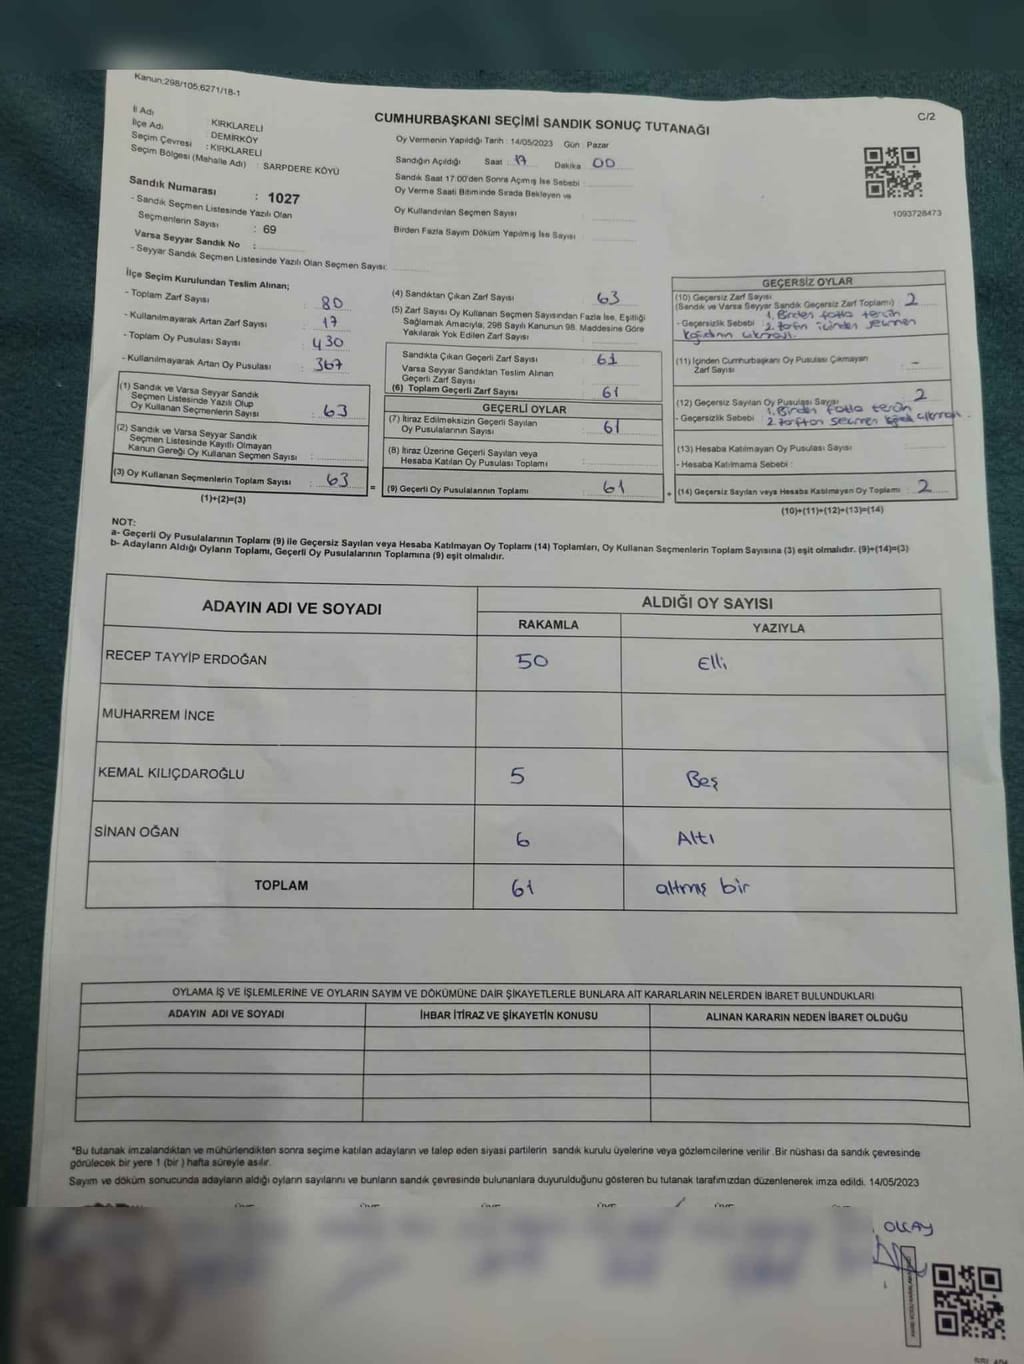 Kanun:298/105,6271/18-1
C/2
CUMHURBAŞKANI SEÇİMİ SANDIK SONUÇ TUTANAĞI
İl Adı KIRKLARELİ
İlçe Adı DEMİRKÖY
Seçim Çevresi : KIRKLARELİ
Seçim Bölgesi (Mahalle Adı) : SARPDERE KÖYÜ
Sandık Numarası : 1027
- Sandık Seçmen Listesinde Yazılı Olan
Seçmenlerin Sayısı : 69
Varsa Seyyar Sandık No :
- Seyyar Sandık Seçmen Listesinde Yazılı Olan Seçmen Sayısı:
Oy Vermenin Yapıldığı Tarih : 14/05/2023 Gün : Pazar
Sandığın Açıldığı Saat : 17 Dakika : 00
Sandık Saat 17:00'den Sonra Açımış İse Sebebi
Oy Verme Saati Bitiminde Sırada Bekleyen ve
Oy Kullandırılan Seçmen Sayısı
Birden Fazla Sayım Döküm Yapılmış İse Sayısı
1093728473
İlçe Seçim Kurulundan Teslim Alınan;
- Toplam Zarf Sayısı : 80
- Kullanılmayarak Artan Zarf Sayısı : 17
- Toplam Oy Pusulası Sayısı : 430
- Kullanılmayarak Artan Oy Pusulası : 367
(1) Sandık ve Varsa Seyyar Sandık
Seçmen Listesinde Yazılı Olup
Oy Kullanan Seçmenlerin Sayısı : 63
(2) Sandık ve Varsa Seyyar Sandık
Seçmen Listesinde Kayıtlı Olmayan
Kanun Gereği Oy Kullanan Seçmen Sayısı :
(3) Oy Kullanan Seçmenlerin Toplam Sayısı : 63
(1)+(2)=(3)
=
(4) Sandıktan Çıkan Zarf Sayısı 63
(5) Zarf Sayısı Oy Kullanan Seçmen Sayısından Fazla İse, Eşitliği
Sağlamak Amacıyla, 298 Sayılı Kanunun 98. Maddesine Göre
Yakılarak Yok Edilen Zarf Sayısı
Sandıkta Çıkan Geçerli Zarf Sayısı : 61
Varsa Seyyar Sandıktan Teslim Alınan
Geçerli Zarf Sayısı
(6) Toplam Geçerli Zarf Sayısı : 61
GEÇERLİ OYLAR
(7) İtiraz Edilmeksizin Geçerli Sayılan
Oy Pusulalarının Sayısı : 61
(8) İtiraz Üzerine Geçerli Sayılan veya
Hesaba Katılan Oy Pusulası Toplamı :
(9) Geçerli Oy Pusulalarının Toplamı : 61
+
GEÇERSİZ OYLAR
(10) Geçersiz Zarf Sayısı
(Sandık ve Varsa Seyyar Sandık Geçersiz Zarf Toplamı) : 2
- Geçersizlik Sebebi : 1. Birden fazla tercih
2. zarfın içinden seçmen
kağıdının çıkması.
(11) İçinden Cumhurbaşkanı Oy Pusulası Çıkmayan
Zarf Sayısı : -
(12) Geçersiz Sayılan Oy Pusulası Sayısı : 2
- Geçersizlik Sebebi : 1. Birden fazla tercih
2. zarftan seçmen
(13) Hesaba Katılmayan Oy Pusulası Sayısı
- Hesaba Katılmama Sebebi :
(14) Geçersiz Sayılan veya Hesaba Katılmayan Oy Toplamı : 2
(10)+(11)+(12)+(13)=(14)
NOT:
a- Geçerli Oy Pusulalarının Toplamı (9) ile Geçersiz Sayılan veya Hesaba Katılmayan Oy Toplamı (14) Toplamları, Oy Kullanan Seçmenlerin Toplam Sayısına (3) eşit olmalıdır. (9)+(14)=(3)
b- Adayların Aldığı Oyların Toplamı, Geçerli Oy Pusulalarının Toplamına (9) eşit olmalıdır.
ADAYIN ADI VE SOYADI ALDIĞI OY SAYISI
RAKAMLA YAZIYLA
RECEP TAYYİP ERDOĞAN 50 Elli
MUHARREM İNCE
KEMAL KILIÇDAROĞLU 5 Beş
SİNAN OĞAN 6 Altı
TOPLAM 61 altmış bir
OYLAMA İŞ VE İŞLEMLERİNE VE OYLARIN SAYIM VE DÖKÜMÜNE DAİR ŞİKAYETLERLE BUNLARA AİT KARARLARIN NELERDEN İBARET BULUNDUKLARI
ADAYIN ADI VE SOYADI İHBAR İTİRAZ VE ŞİKAYETİN KONUSU ALINAN KARARIN NEDEN İBARET OLDUĞU
*Bu tutanak imzalandıktan ve mühürlendikten sonra seçime katılan adayların ve talep eden siyasi partilerin sandık kurulu üyelerine veya gözlemcilerine verilir. Bir nüshası da sandık çevresinde
görülecek bir yere 1 (bir ) hafta süreyle asılır.
Sayım ve döküm sonucunda adayların aldığı oyların sayılarını ve bunların sandık çevresinde bulunanlara duyurulduğunu gösteren bu tutanak tarafımızdan düzenlenerek imza edildi. 14/05/2023
OLCAY